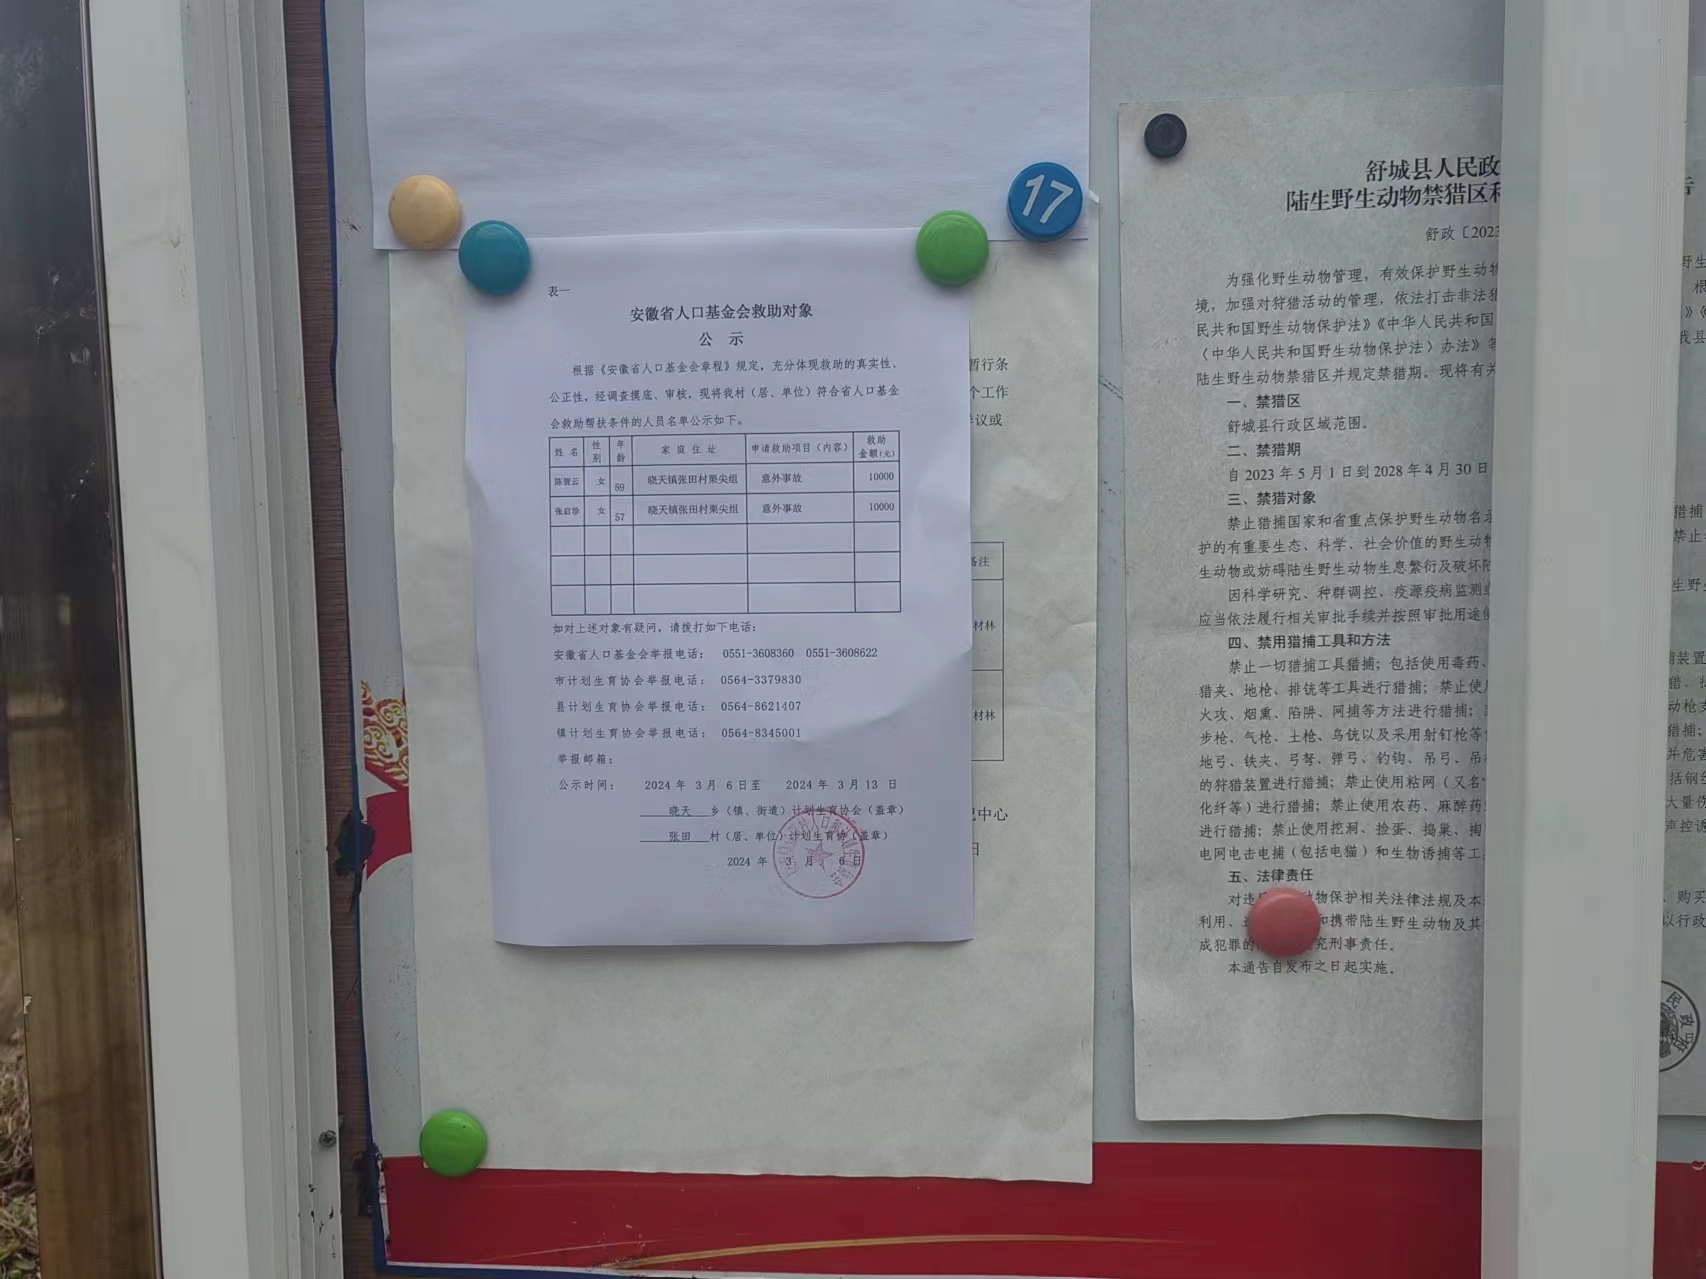 17
表一
安徽省人口基金会救助对象
公 示
根据《安徽省人口基金会章程》规定，充分体现救助的真实性、
公正性，经调查摸底、审核，现将我村（居、单位）符合省人口基金
会救助帮扶条件的人员名单公示如下。
姓名 性别 年龄 家庭住址 申请救助项目（内容） 救助金额(元)
陈贺云 女 59 晓天镇张田村栗尖组 意外事故 10000
张启珍 女 57 晓天镇张田村栗尖组 意外事故 10000
如对上述对象有疑问，请拨打如下电话：
安徽省人口基金会举报电话： 0551-3608360 0551-3608622
市计划生育协会举报电话： 0564-3379830
县计划生育协会举报电话： 0564-8621407
镇计划生育协会举报电话： 0564-8345001
举报邮箱：
公示时间： 2024 年 3 月 6 日至 2024 年 3 月 13 日
晓天 乡（镇、街道）计划生育协会（盖章）
张田 村（居、单位）计划生育协（盖章）
2024 年 3 月 6 日
暂行条
个工作
议或
备注
材林
材林
中心
日
舒城县人民政
陆生野生动物禁猎区和
舒政〔2023
为强化野生动物管理，有效保护野生动物
境，加强对狩猎活动的管理，依法打击非法猎
民共和国野生动物保护法》《中华人民共和国
〈中华人民共和国野生动物保护法〉办法》等
陆生野生动物禁猎区并规定禁猎期。现将有关
一、禁猎区
舒城县行政区域范围。
二、禁猎期
自 2023 年 5 月 1 日到 2028 年 4 月 30 日
三、禁猎对象
禁止猎捕国家和省重点保护野生动物名录
护的有重要生态、科学、社会价值的野生动物
生动物或妨碍陆生野生动物生息繁衍及破坏
因科学研究、种群调控、疫源疫病监测或
应当依法履行相关审批手续并按照审批用途使
四、禁用猎捕工具和方法
禁止一切猎捕工具猎捕；包括使用毒药、
猎夹、地枪、排铳等工具进行猎捕；禁止使用
火攻、烟熏、陷阱、网捕等方法进行猎捕；
步枪、气枪、土枪、鸟铳以及采用射钉枪等
地弓、铁夹、弓弩、弹弓、钓钩、吊弓、吊
的狩猎装置进行猎捕；禁止使用粘网（又名
化纤等）进行猎捕；禁止使用农药、麻醉药
进行猎捕；禁止使用挖洞、捡蛋、捣巢、掏
电网电击电捕（包括电猫）和生物诱捕等工
五、法律责任
对违 动物保护相关法律法规及本
利用、 和携带陆生野生动物及其
成犯罪的 究刑事责任。
本通告自发布之日起实施。